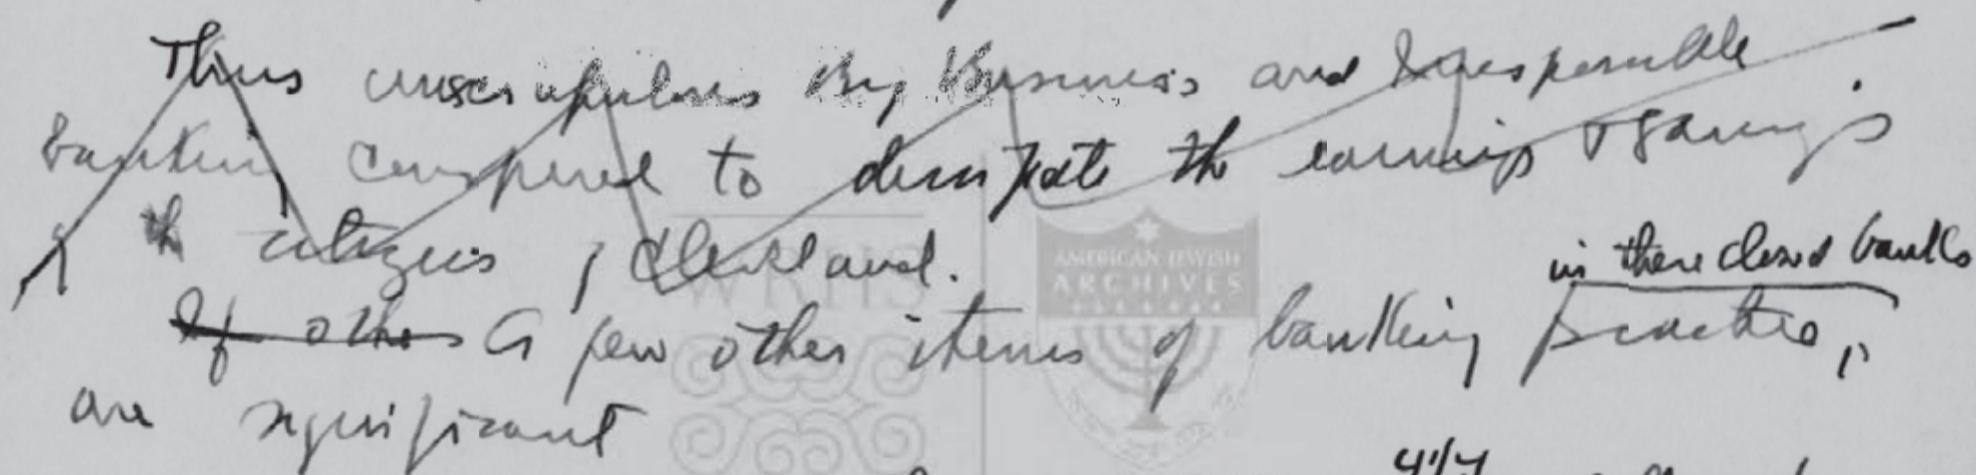 Thus unscrupulous Big Business and Irresponsible
banking conspired to dissipate the earnings & savings
of the citizens of Cleveland.
in these closed banks
If others A few other items of banking practice,
are significant
WRHS
AMERICAN JEWISH
ARCHIVES